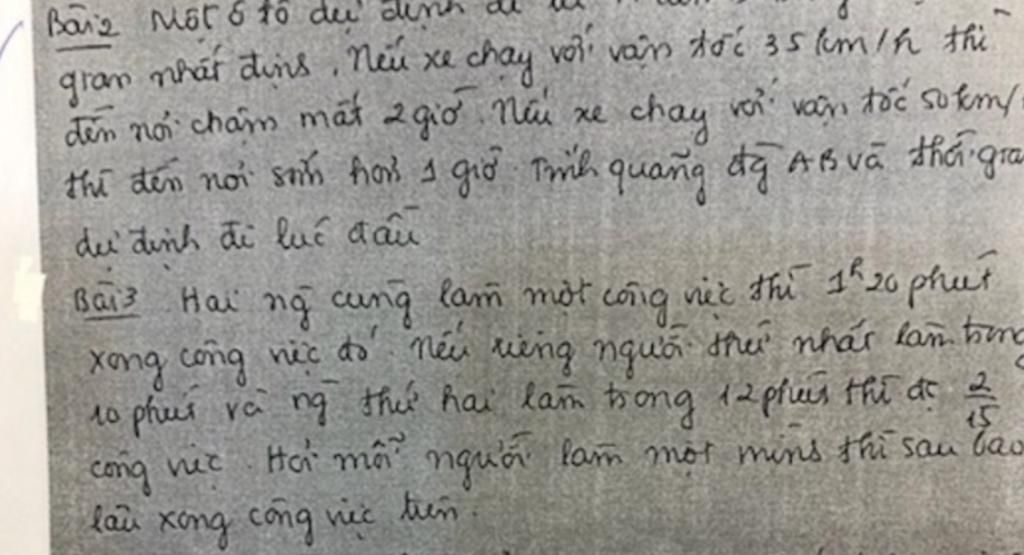 Bài2 Một ô tô dự định đi
gian nhất định. Nếu xe chạy với vận tốc 35 km/h thì
đến nơi chậm mất 2 giờ. Nếu xe chạy với vận tốc 50 km/
thì đến nơi sớm hơn 1 giờ. Tính quãng đg AB và thời gia
dự định đi lúc đầu
Bài3 Hai ng cùng làm một công việc thì 1h20 phút
xong công việc đó. Nếu riêng người thứ nhất làm trong
10 phút và ng thứ hai làm trong 12 phút thì đc 2/15
công việc. Hỏi mỗi người làm một mình thì sau bao
lâu xong công việc trên.